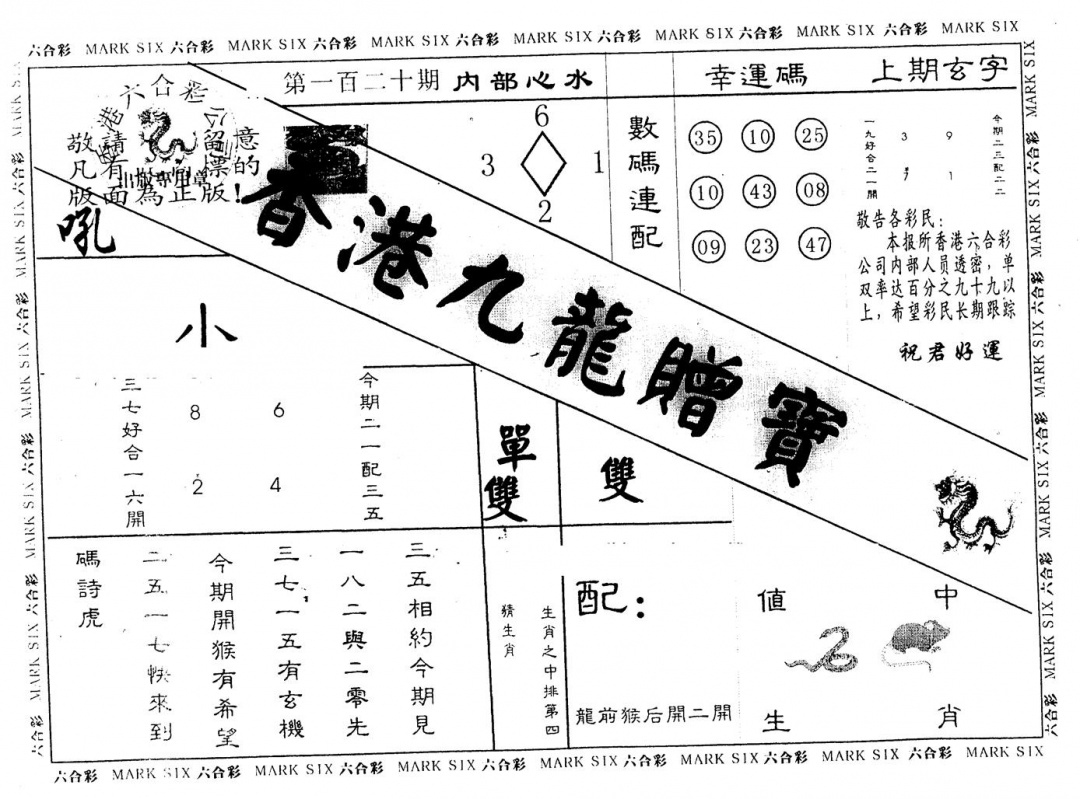 六合彩 MARK SIX 六合彩 MARK SIX 六合彩 MARK SIX 六合彩 MARK SIX 六合彩 MARK SIX 六合彩 MARK SIX 六合彩 MARK SIX
第一百二十期 内部心水
幸運碼
上期玄字
六合彩
敬請留意
凡有標的
版面為正版!
吼
6
3 1
2
數碼連配
35 10 25
10 43 08
09 23 47
一九好合二一開
3 9
1
今期二三配二二
敬告各彩民:
本报所香港六合彩
公司内部人员透密,单
双率达百分之九十九以
上,希望彩民长期跟踪
祝君好運
香港九龍贈寶
小
三七好合一六開
8 6
2 4
今期二一配三五
單雙
雙
碼詩虎
二五一七快來到
今期開猴有希望
三七一五有玄機
一八二與二零先
三五相約今期見
猜生肖
生肖之中排第四
配:
龍前猴后開二開
值 中
生 肖
六合彩 MARK SIX 六合彩 MARK SIX 六合彩 MARK SIX 六合彩 MARK SIX 六合彩 MARK SIX 六合彩 MARK SIX 六合彩 MARK SIX